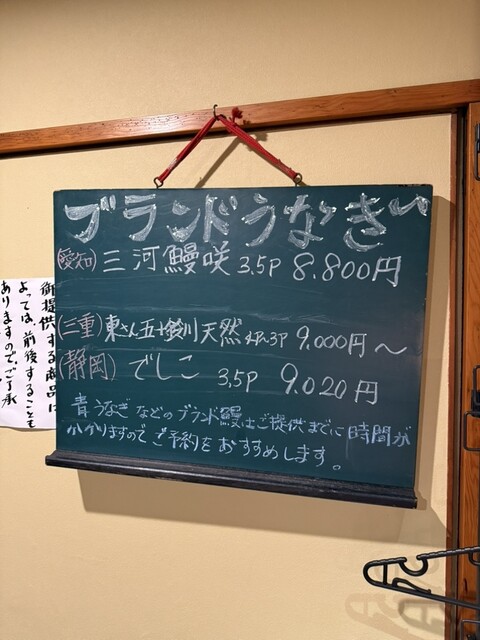 ブランドうなぎ
(愛知) 三河鰻咲 3.5P 8.800円
(三重) 東さん五十鈴川天然 3P 9.000円～
(静岡) でしこ 3.5P 9.020円
青うなぎなどのブランド鰻はご提供までに時間が
かかりますのでご予約をおすすめします。
御提供する商品に
よっては、前後することも
ありますので、ご了承